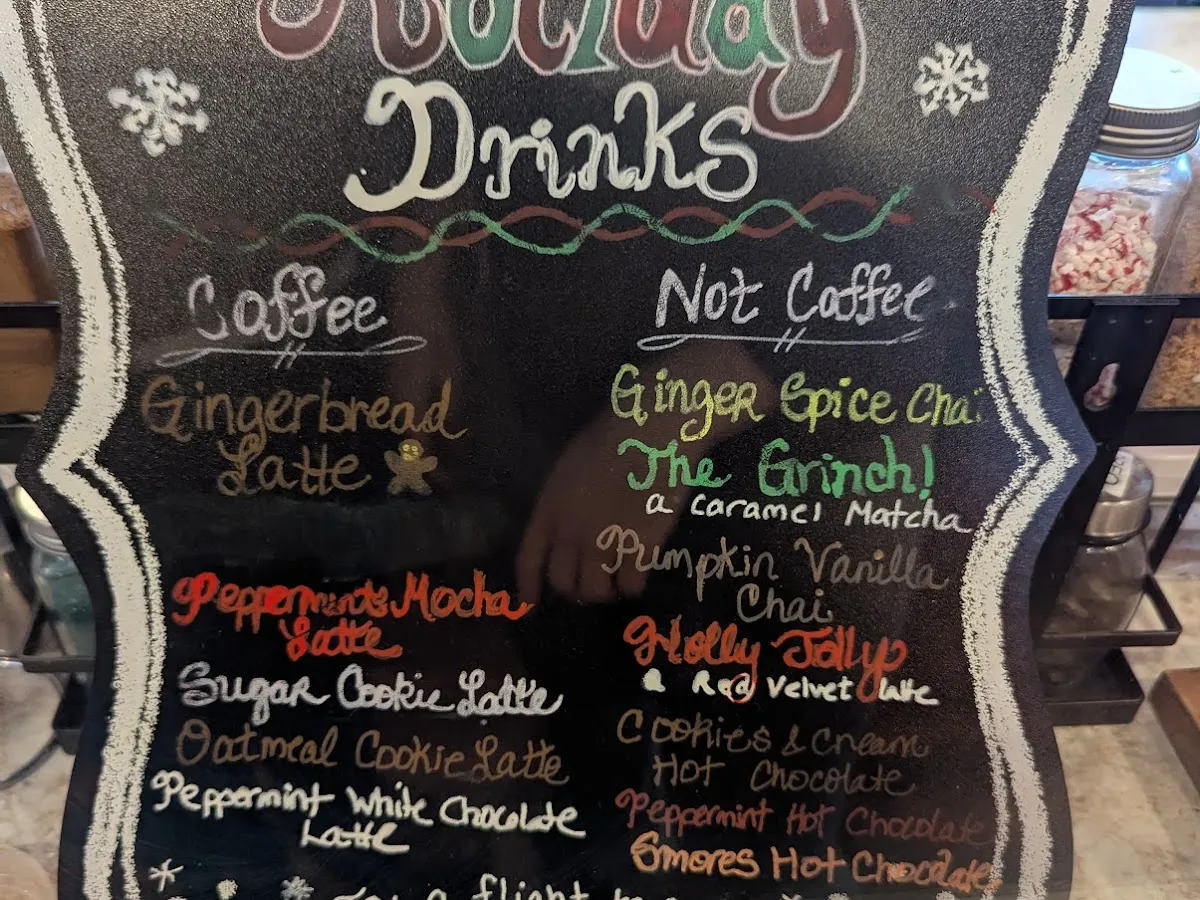 Holiday
Drinks
Coffee
Gingerbread
Latte
Peppermint Mocha
Latte
Sugar Cookie Latte
Oatmeal Cookie Latte
Peppermint White Chocolate
Latte
Not Coffee
Ginger Spice Chai
The Grinch!
a caramel Matcha
Pumpkin Vanilla
Chai
Holly Jolly
a Red Velvet latte
Cookies & Cream
Hot Chocolate
Peppermint Hot Chocolate
Smores Hot Chocolate
a flight